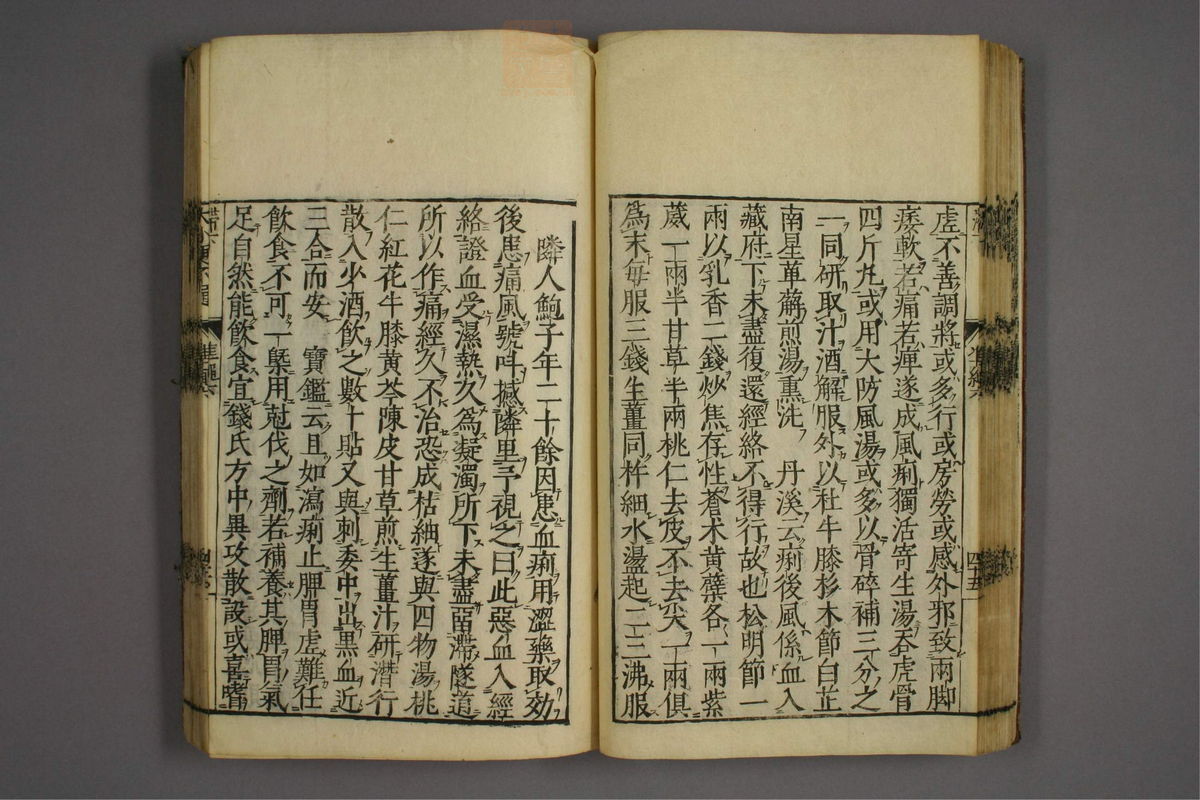 虚不善調將或多行或房勞或感外邪致兩脚
痿軟若痛若痺遂成風痢獨活寄生湯吞虎骨
四斤丸或用大防風湯或多以骨碎補三分之
一同研取汁酒解服外以杜牛膝杉木節白芷
南星萆薢煎湯熏洗 丹溪云痢後風係血入
藏府下未盡復還經絡不得行故也松明節一
兩以乳香二錢炒焦存性蒼朮黃蘗各一兩紫
葳一兩半甘草半兩桃仁去皮不去尖一兩俱
為末每服三錢生薑同杵細水盪起二三沸服
隣人鮑子年二十餘因患血痢用澀藥取効
後患痛風號叫撼隣里予視之曰此惡血入經
絡證血受濕熱久為凝濁所下未盡留滯隧道
所以作痛經久不治恐成枯細遂與四物湯桃
仁紅花牛膝黃芩陳皮甘草煎生薑汁研潛行
散入少酒飲之數十貼又與刺委中出黑血近
三合而安 寶鑑云且如瀉痢止脾胃虛難任
飲食不可一槩用尅伐之劑若補養其脾胃氣
足自然能飲食宜錢氏方中異攻散設或喜嗜